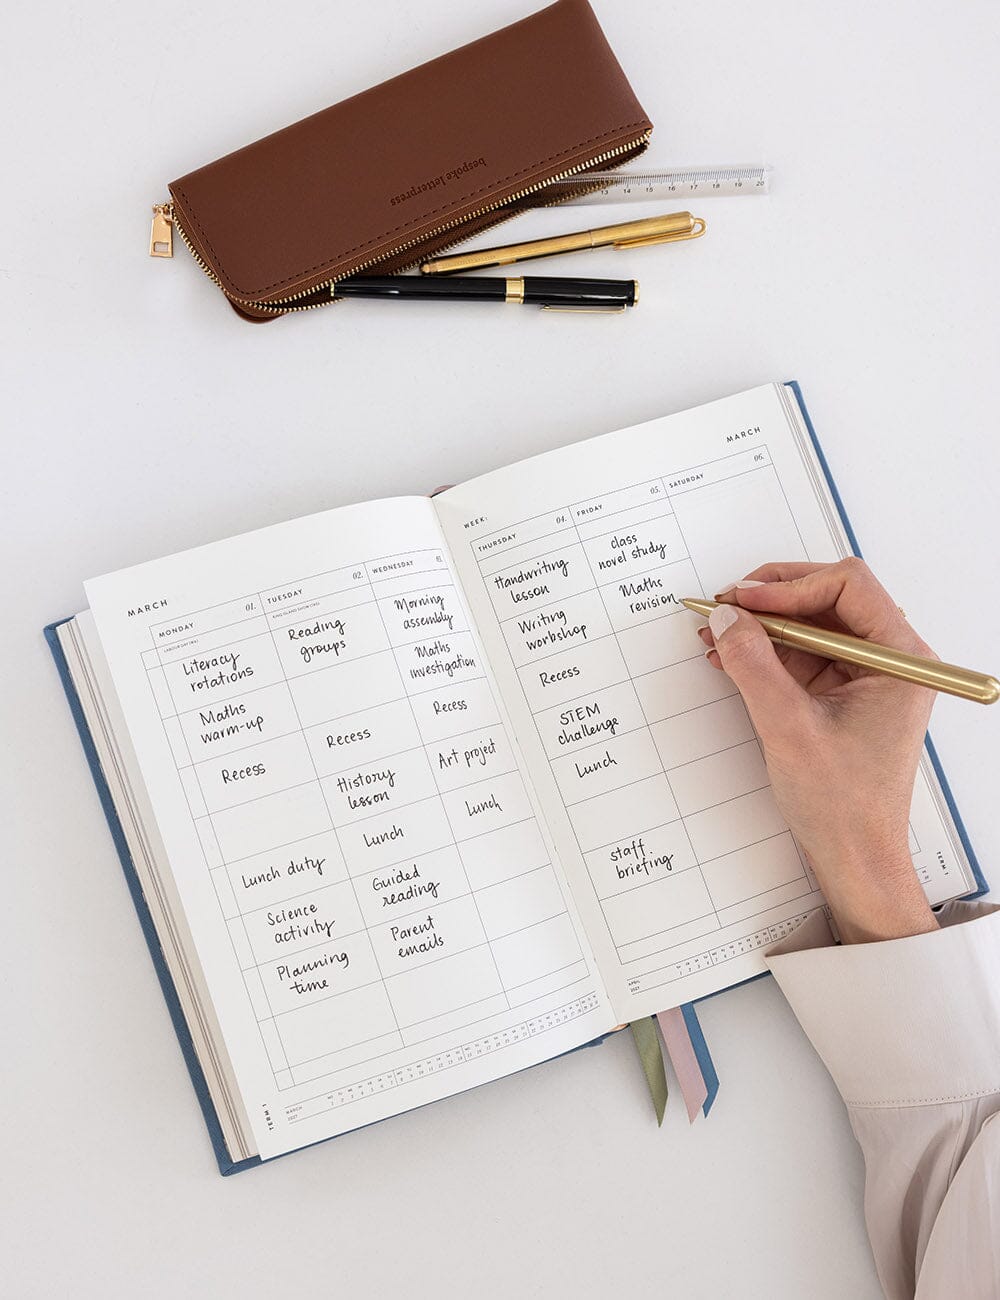 bespoke letterpress
13 14 15 16 17 18 19 20
MARCH
01.
MONDAY
LABOUR DAY (WA)
Literacy
rotations
Maths
warm-up
Recess
Lunch duty
Science
activity
Planning
time
02.
TUESDAY
Reading
groups
Recess
History
lesson
Lunch
Guided
reading
Parent
emails
03.
WEDNESDAY
Morning
assembly
Maths
investigation
Recess
Art project
Lunch
TERM 1
MARCH
2027
MARCH
WEEK:
04.
THURSDAY
Handwriting
lesson
Writing
workshop
Recess
STEM
challenge
Lunch
staff
briefing
05.
FRIDAY
class
novel study
Maths
revision
06.
SATURDAY
APRIL
2027
TERM 1